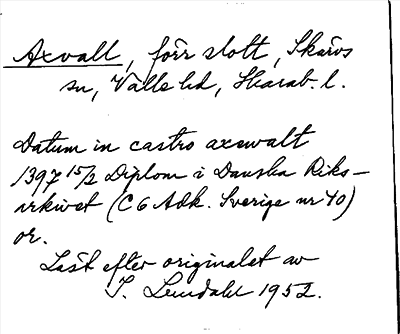 Axvall, förr slott, Skärvs
sn, Valle hd, Skarab. l.
Datum in castro axewalt
1397 15/2 Diplom i Danska Riks-
arkivet (C 6 Adk. Sverige nr 40)
or.
Läst efter originalet av
I. Lundahl 1952.